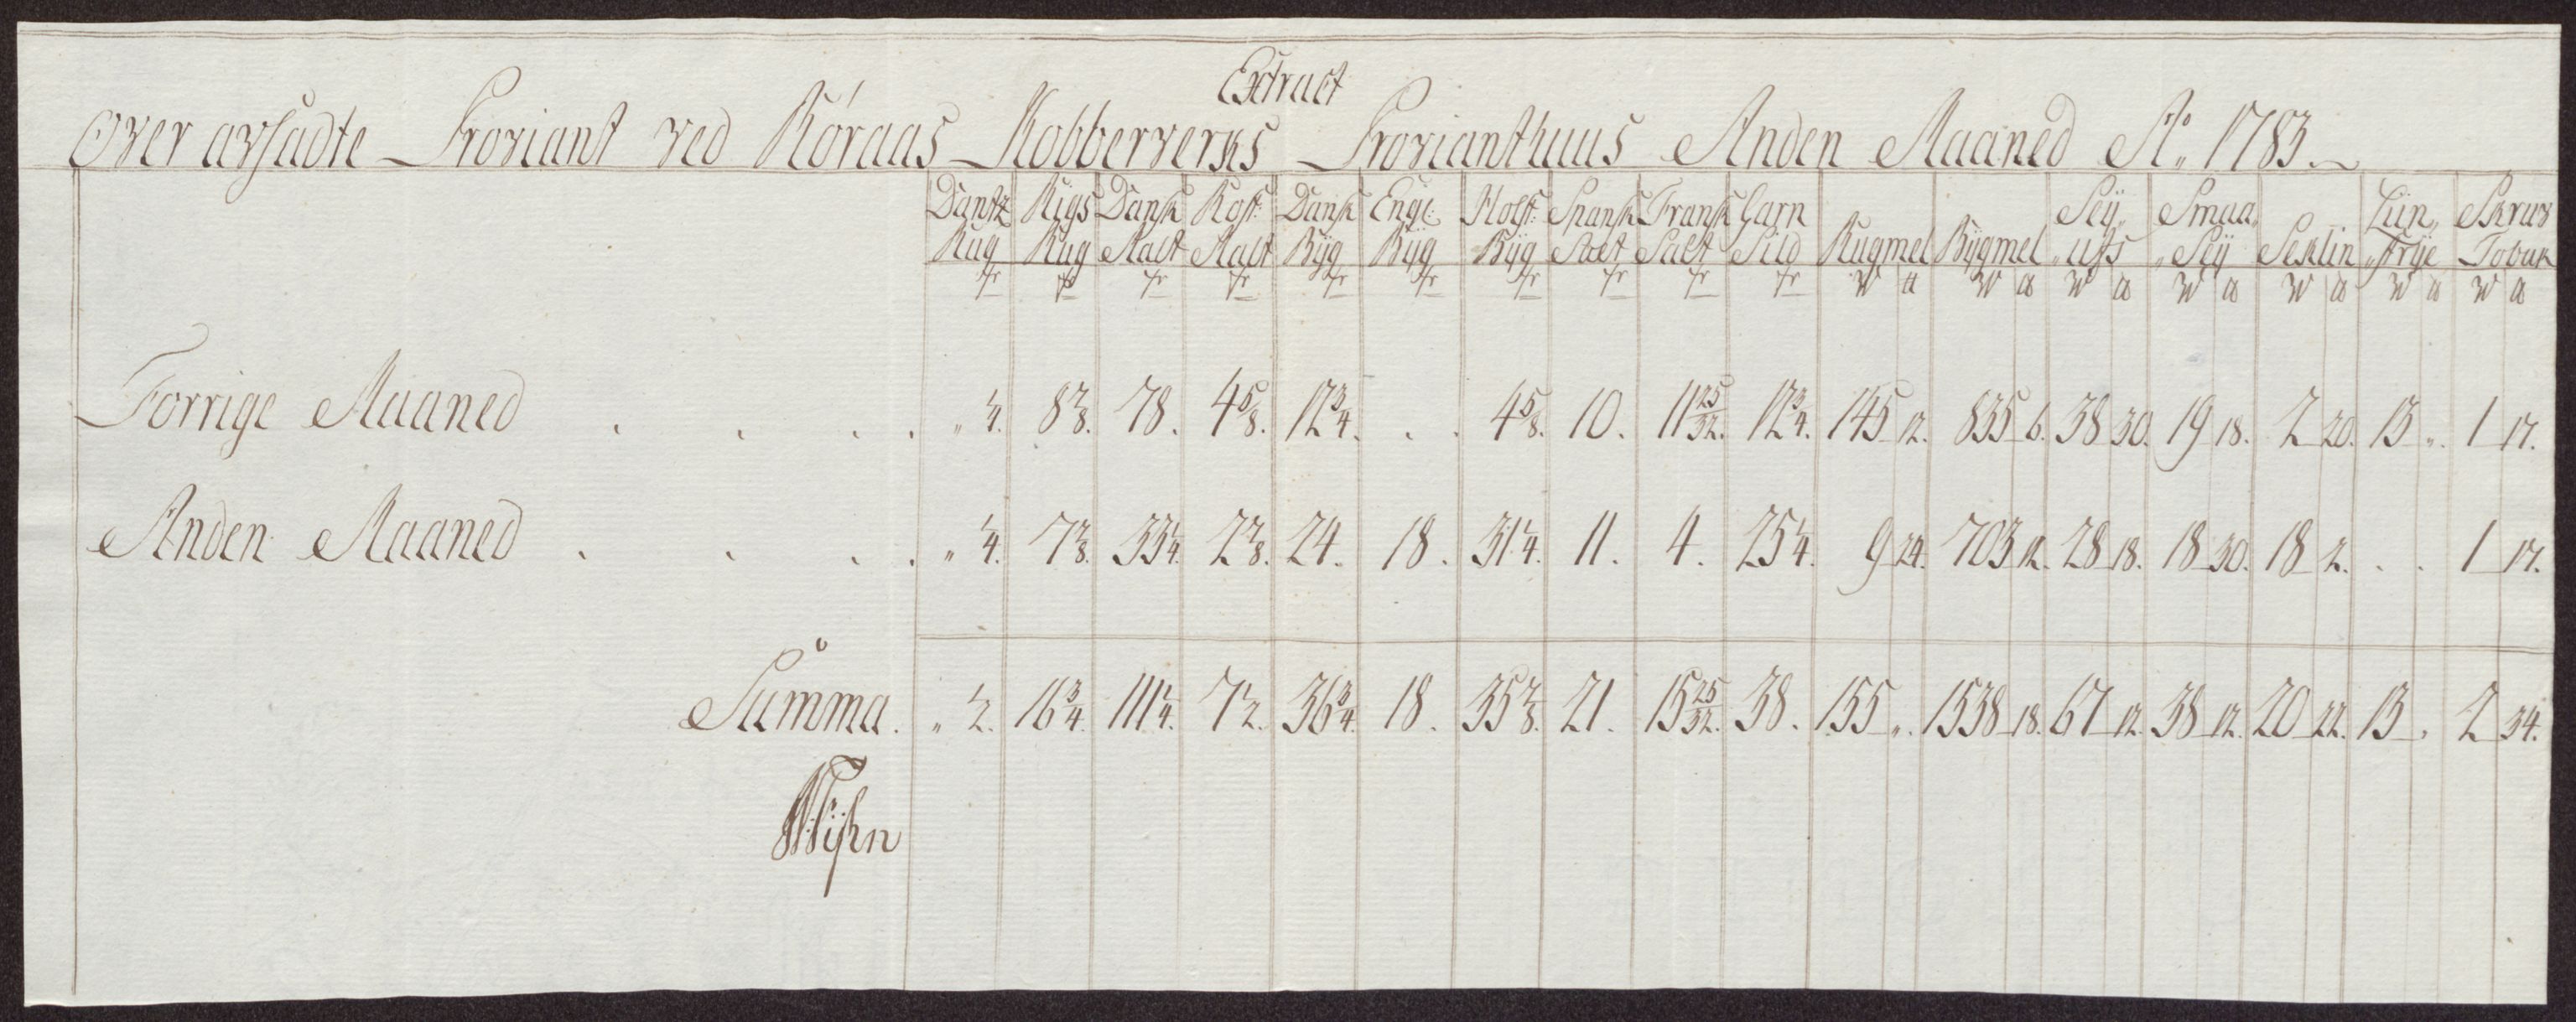 Extract
Over avsadte Proviant ved Röraas Kobberverks Provianthuus Anden Maaned Aº 1783.
Dantz Rug Rigs Rug Dansk Malt Rost: Malt Dansk Byg Engl: Byg Holst: Byg Spansk Salt Fransk Salt Garn Sild Rugmel Bÿgmel Seÿ uffs Smaa Seÿ Seklin Tobak
Forrige Maaned . . . . „ ¼. 8⅞. 78. 4⅝. 12¾. . . 4⅝. 10. 11 25/32. 12¾. 145 12. 835 6. 38 30. 19 18. 2 20. 13 „. 1 17.
Anden Maaned . . . . „ ¼. 7⅞. 33¼. 2⅞. 24. 18. 31¼. 11. 4. 25¼. 9 24. 703 12. 28 18. 18 30. 18 2. . . 1 17.
Summa. „ ½. 16¾. 111¼. 7½. 36¾. 18. 35⅞. 21. 15 25/32. 38. 155 „. 1538 18. 67 12. 38 12. 20 22. 13 . 2 34.